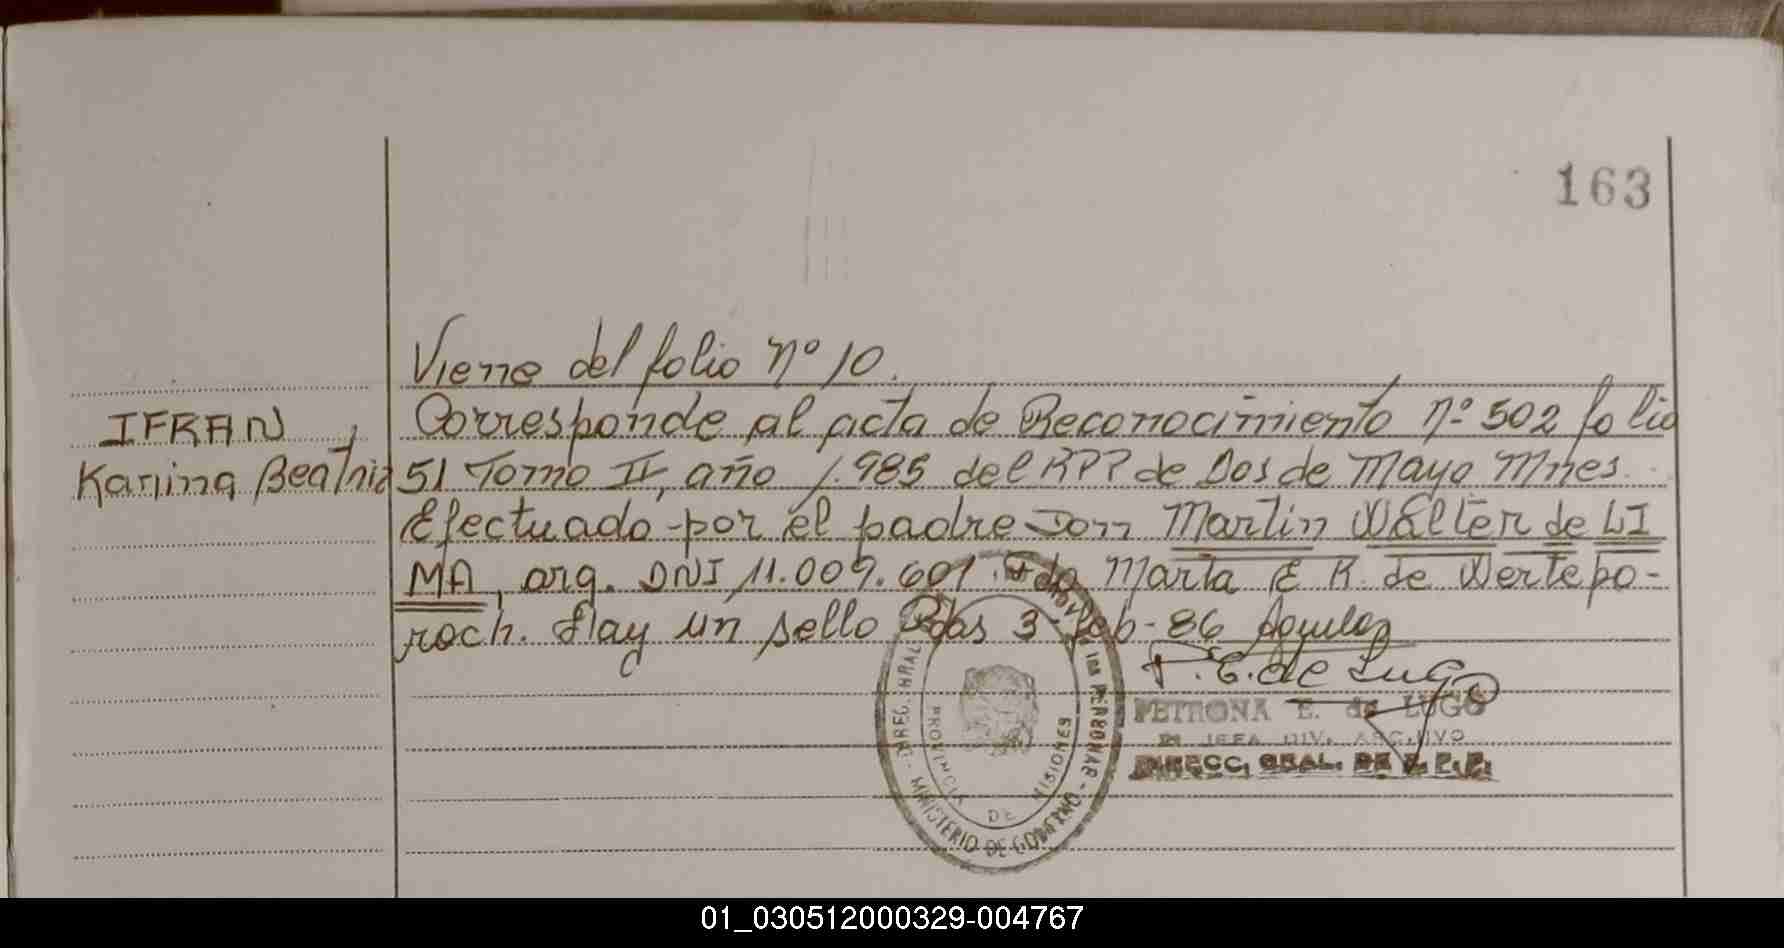 163
Viene del folio Nº 10.
IFRAN,
Karina Beatriz
Corresponde al acta de Reconocimiento Nº 502 folio
51 Tomo II, año 1.985 del RPP de Dos de Mayo Mnes.
Efectuado por el padre Don Martin Walter de LI
MA, arg. DNI 11.009.601. Fdo Marta E R. de Wertepo-
roch. Hay un sello Pdas 3-Feb-86
P. E. de Lugo
PETRONA E. de LUGO
JEFA DIV. ARCHIVO
DIRECC. GRAL. DE R. P. P.
DIREC. GRAL. PERSONAS - MINISTERIO DE GOBIERNO
PROVINCIA DE MISIONES
01_030512000329-004767